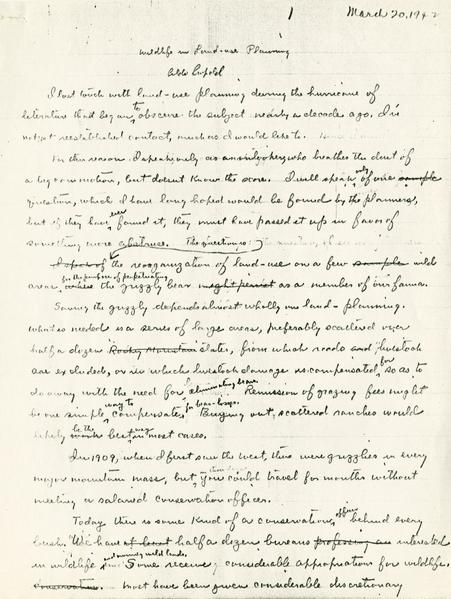 1 March 20, 1942
Wildlife in Land-use Planning
Aldo Leopold
I lost touch with land-use planning during the hurricane of
literature that began to obscure the subject nearly a decade ago. I've
not yet reestablished contact, much as I would like to.
For this reason I speak only as an onlooker who breathes the dust of
a big commotion, but doesn't know the score. I will speak only of one sample
question, which I have long hoped would be found by the planners,
but if they have ever found it, they must have passed it up in favor of
something more abstruse. The question is:
I speak of the reorganization of land-use on a few sample wild
areas for the purpose of perpetuating the grizzly bear might persist as a member of our fauna.
Saving the grizzly depends almost wholly on land-planning.
What is needed is a series of large areas, preferably scattered over
half a dozen Rocky Mountain states, from which roads and livestock
are excluded, or in which livestock damage is compensated for so as to
do away with the need for eliminating bears. Remission of grazing fees might
be one simple way to compensate for bear-losses. Buying out scattered ranches would
likely be the works best way in most cases.
In 1909, when I first saw the west, there were grizzlies in every
major mountain mass, but you could travel for months without
meeting a salaried conservation officer.
Today there is some kind of a conservation officer behind every
bush. We have at least half a dozen bureaus professing an interested
in wildlife and owning wild lands. Some receive considerable appropriations for wildlife.
conservation. most have been given considerable discretionary